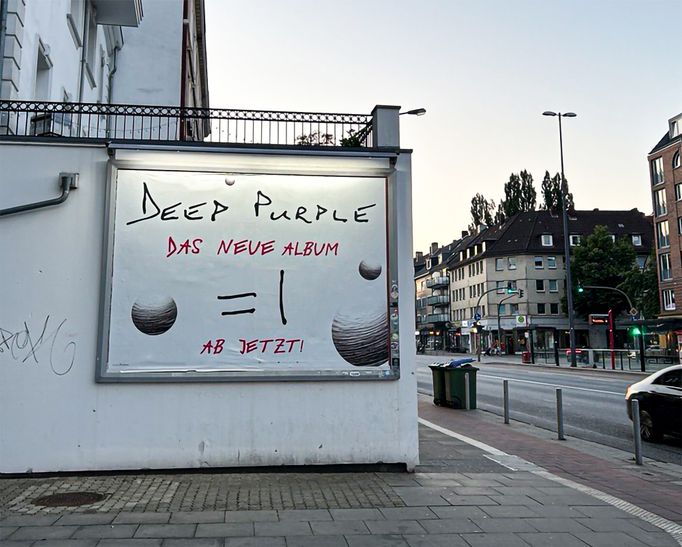 DEEP PURPLE
DAS NEUE ALBUM
=1
AB JETZT!